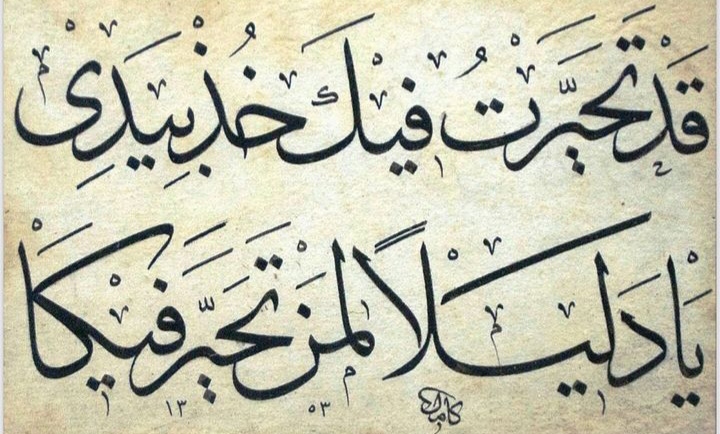 قَدْ تَحَيَّرْتُ فِيْكَ خُذْ بِيَدِيْ
يَا دَلِيْلًا لِمَنْ تَحَيَّرَ فِيْكَا
١٣ ٥٣